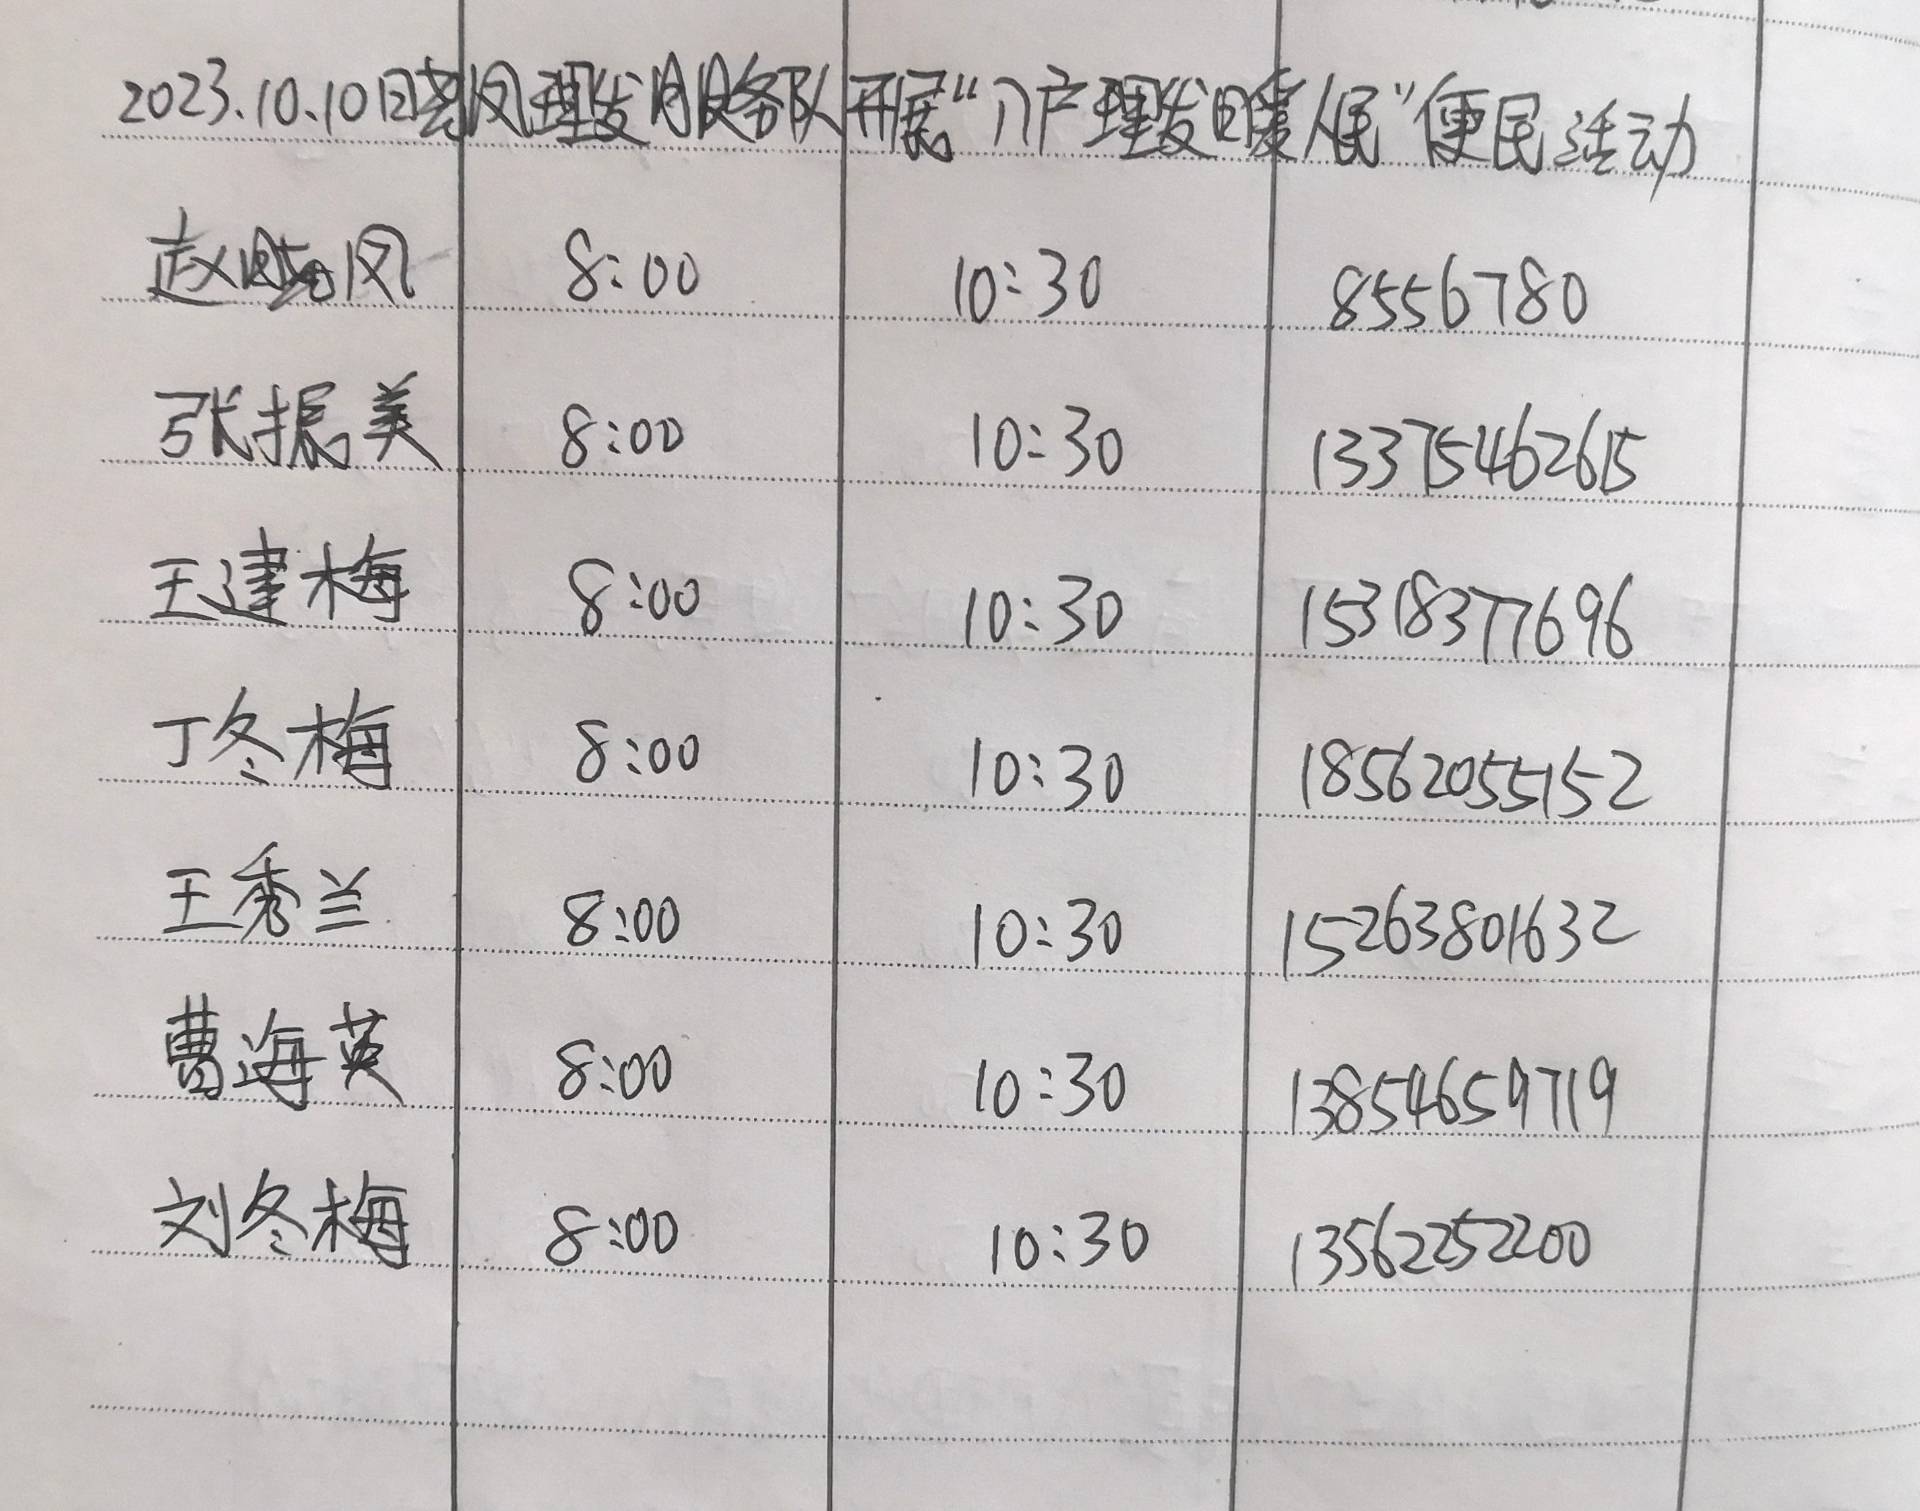 2023.10.10日老凤理发服务队开展“入户理发暖人民”便民活动
赵 凤 8:00 10:30 8556780
张振美 8:00 10:30 13375462615
王建梅 8:00 10:30 15318377696
丁冬梅 8:00 10:30 18562055152
王秀兰 8:00 10:30 15263801632
曹海英 8:00 10:30 13854659719
刘冬梅 8:00 10:30 13562252200